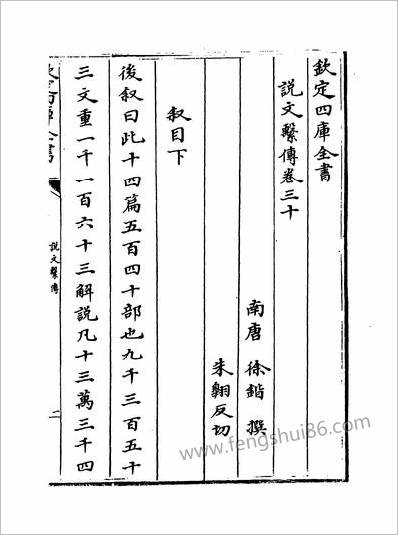 欽定四庫全書
說文繫傳卷三十
南唐 徐鍇 撰
朱翺反切
叙目下
後叙曰此十四篇五百四十部也九千三百五十
三文重一千一百六十三解説凡十三萬三千四
說文繫傳
二
www.fengshui86.com